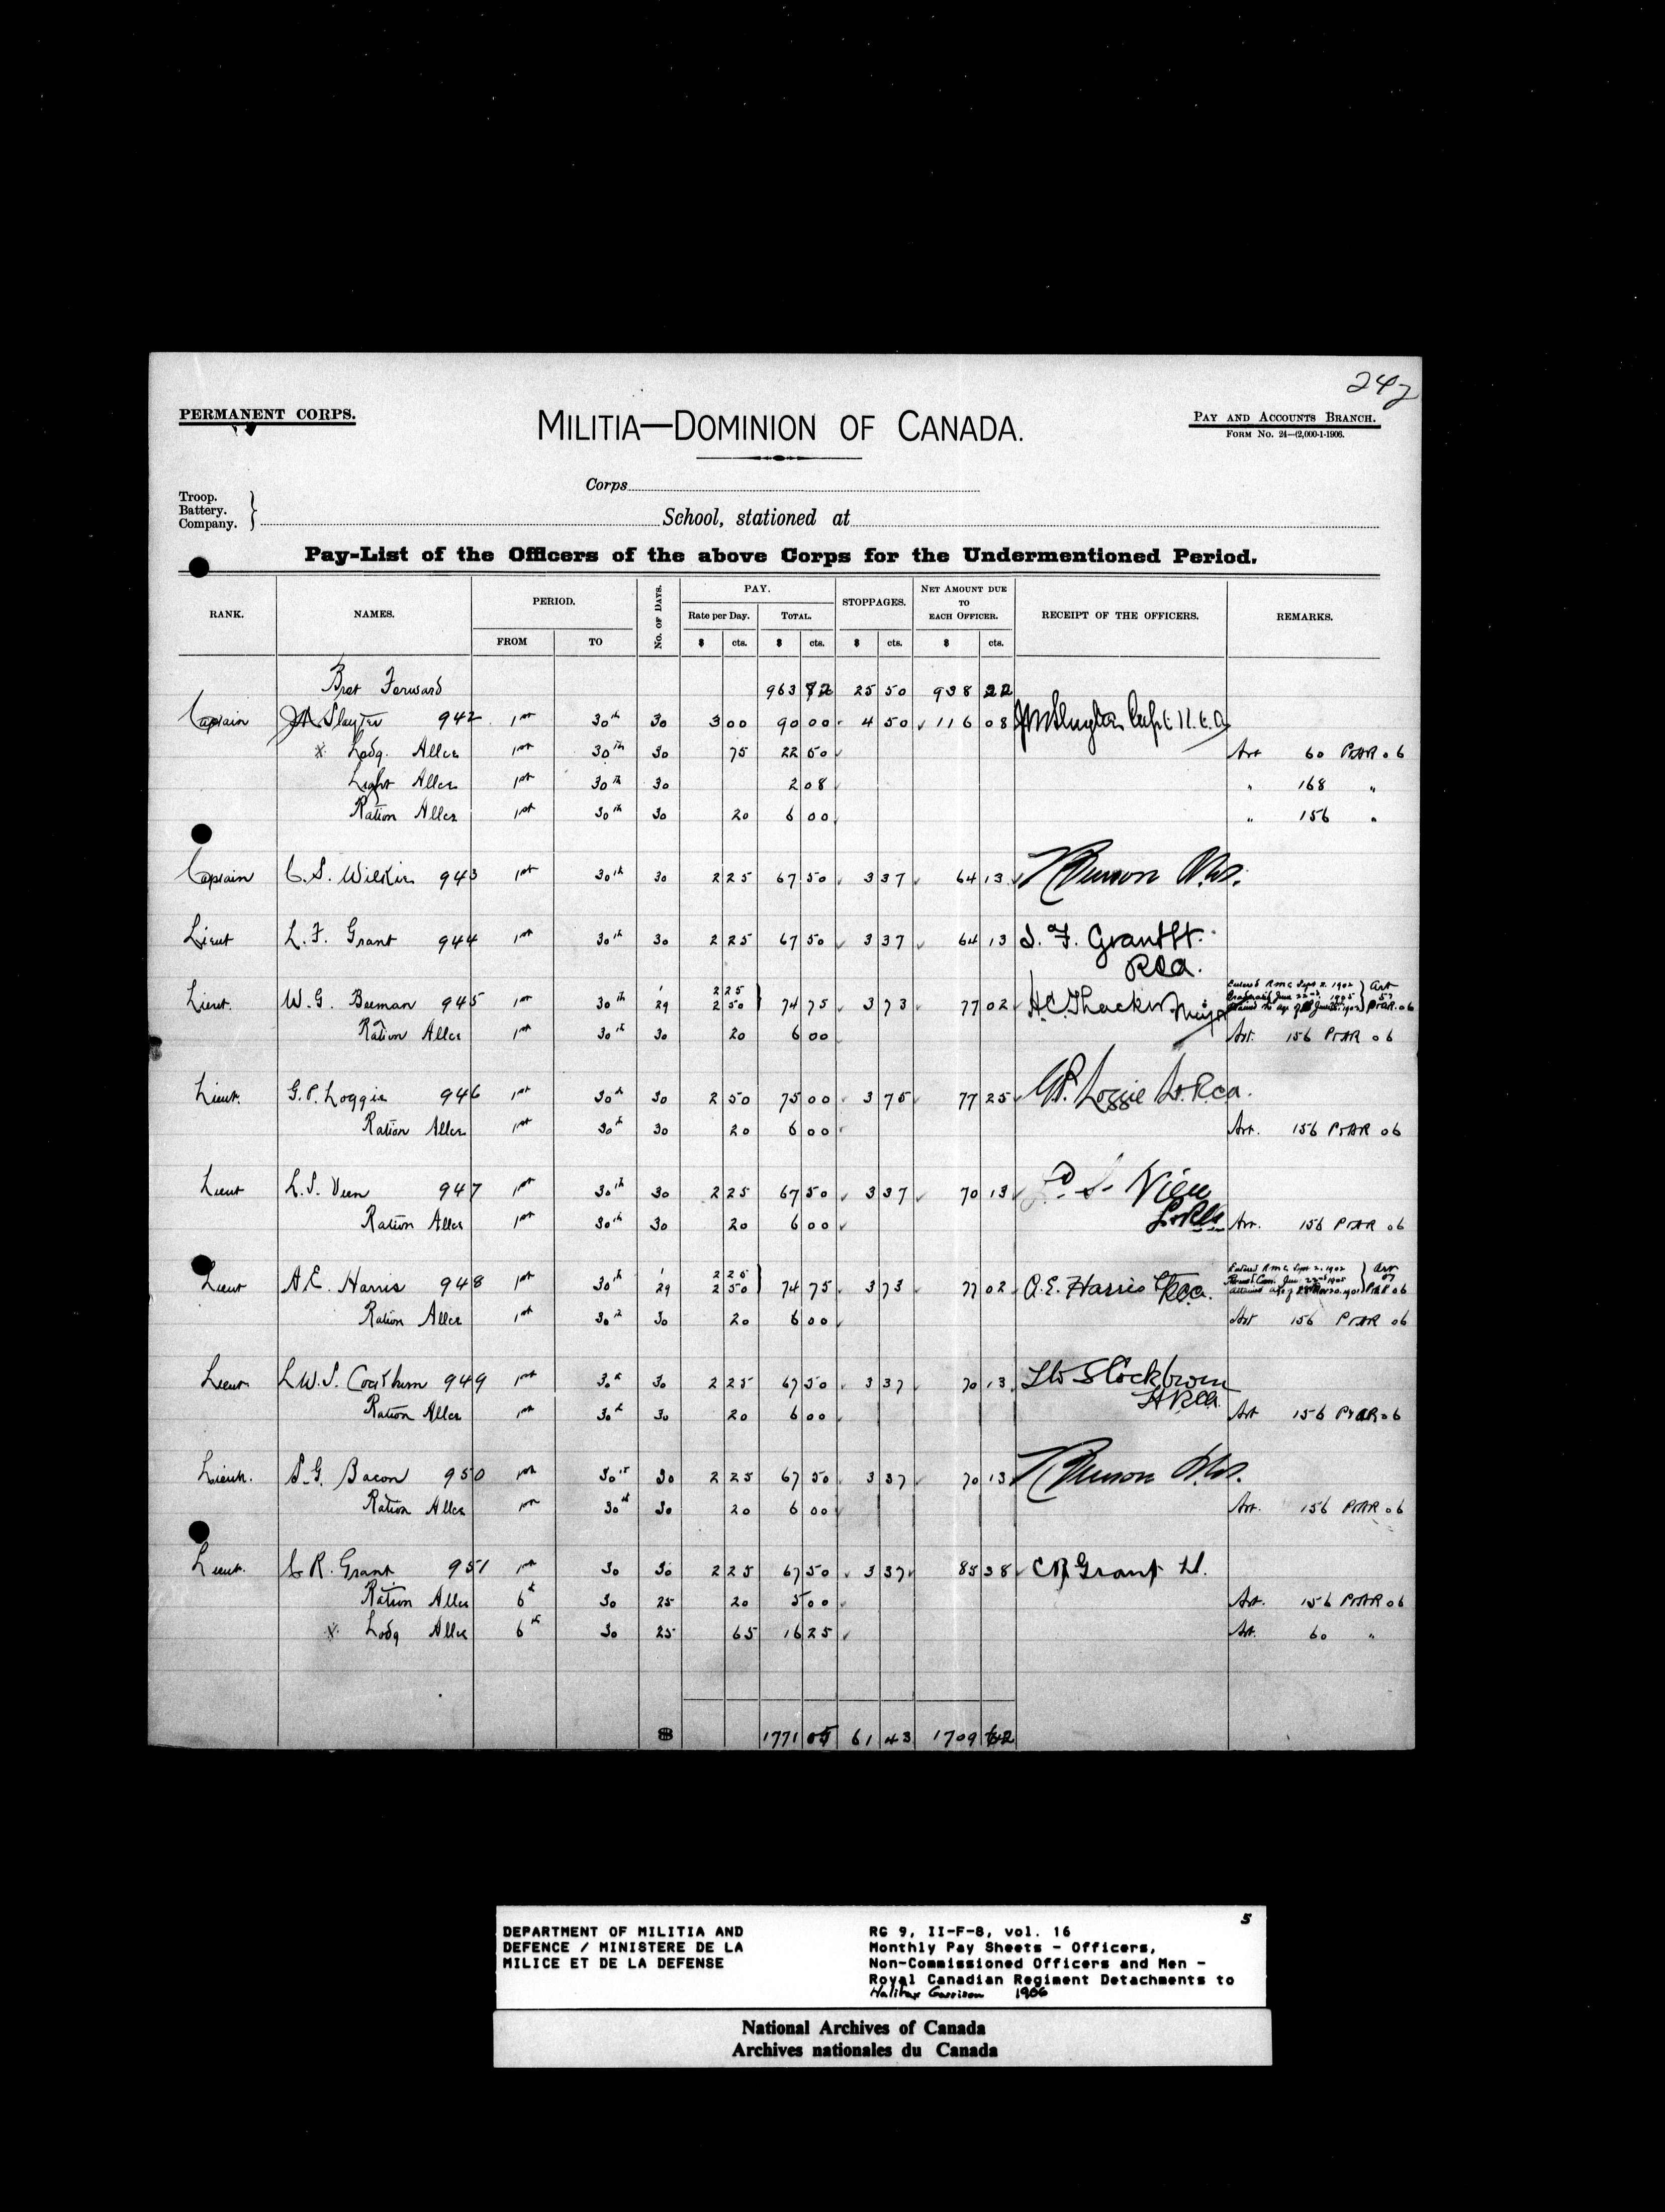 247
PERMANENT CORPS.
MILITIA—DOMINION OF CANADA.
PAY AND ACCOUNTS BRANCH.
FORM NO. 24—(2,000-1-1906.
Corps
Troop.
Battery.
Company.
School, stationed at
Pay-List of the Officers of the above Corps for the Undermentioned Period.
RANK. NAMES. PERIOD. No. OF DAYS. PAY. STOPPAGES. NET AMOUNT DUE TO EACH OFFICER. RECEIPT OF THE OFFICERS. REMARKS.
FROM TO Rate per Day. TOTAL.
$ cts. $ cts. $ cts. $ cts.
Brot Forward 963 72 25 50 938 22
Captain Slayter 942 1st 30th 30 3 00 90 00 4 50 116 08
x Lodg. Allce 1st 30th 30 75 22 50 Art 60 P&AR 06
Light Allce 1st 30th 30 2 08 " 168 "
Ration Allce 1st 30th 30 20 6 00 " 156 "
Captain C.S. Wilkie 943 1st 30th 30 2 25 67 50 3 37 64 13
Lieut L.F. Grant 944 1st 30th 30 2 25 67 50 3 37 64 13 L. F. Grant Lt.
RCA.
Lieut. W.G. Beeman 945 1st 30th 1 29 2 25 2 50 74 75 3 73 77 02 H.C. Thacker Major Entered RMC Sept 2. 1902 Art 57 P&AR 06
Ration Allce 1st 30th 30 20 6 00 Art. 156 P&AR 06
Lieut. G.P. Loggie 946 1st 30th 30 2 50 75 00 3 75 77 25 GP. Loggie Lt. RCA.
Ration Allce 1st 30th 30 20 6 00 Art. 156 P&AR 06
Lieut L.S. Vien 947 1st 30th 30 2 25 67 50 3 37 70 13 Vien
Ration Allce 1st 30th 30 20 6 00 Art. 156 P&AR 06
Lieut A.E. Harris 948 1st 30th 1 29 2 25 2 50 74 75 3 73 77 02 A.E. Harris Lt RCA. Entered RMC Sept 2. 1902 Art 57 P&AR 06
Ration Allce 1st 30th 30 20 6 00 Art 156 P&AR 06
Lieut L.W.S. Cockburn 949 1st 30th 30 2 25 67 50 3 37 70 13 LW S Cockburn
Lt RCA.
Ration Allce 1st 30th 30 20 6 00 Art 156 P&AR 06
Lieut. S.G. Bacon 950 1st 30th 30 2 25 67 50 3 37 70 13
Ration Allce 1st 30th 30 20 6 00 Art. 156 P&AR 06
Lieut. C R. Grant 951 1st 30 30 2 25 67 50 3 37 85 38 CR Grant Lt.
Ration Allce 6th 30 25 20 5 00 Art. 156 P&AR 06
x Lodg Allce 6th 30 25 65 16 25 Art. 60 "
1771 05 61 43 1709 62
5
DEPARTMENT OF MILITIA AND
DEFENCE / MINISTERE DE LA
MILICE ET DE LA DEFENSE
RG 9, II-F-8, vol. 16
Monthly Pay Sheets - Officers,
Non-Commissioned Officers and Men -
Royal Canadian Regiment Detachments to
Halifax Garrison 1906
National Archives of Canada
Archives nationales du Canada